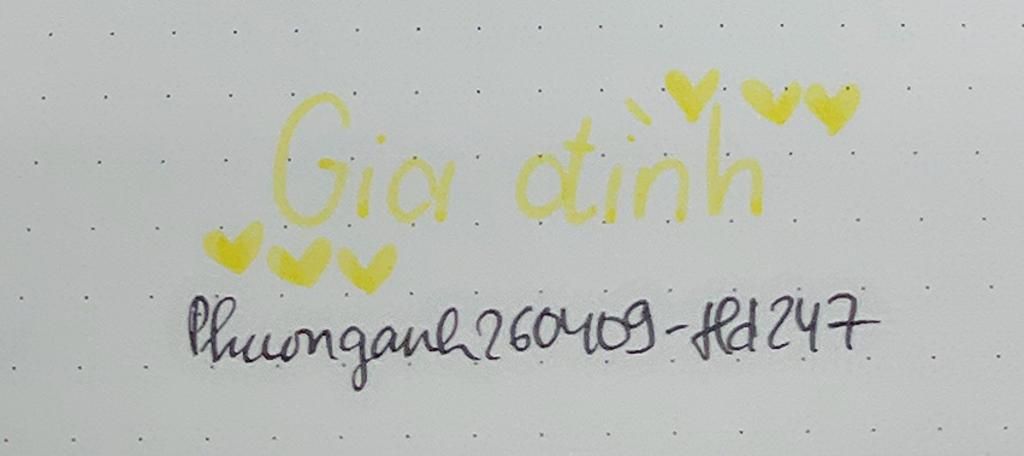 Gia đình
Phuonganh260409-Hd247